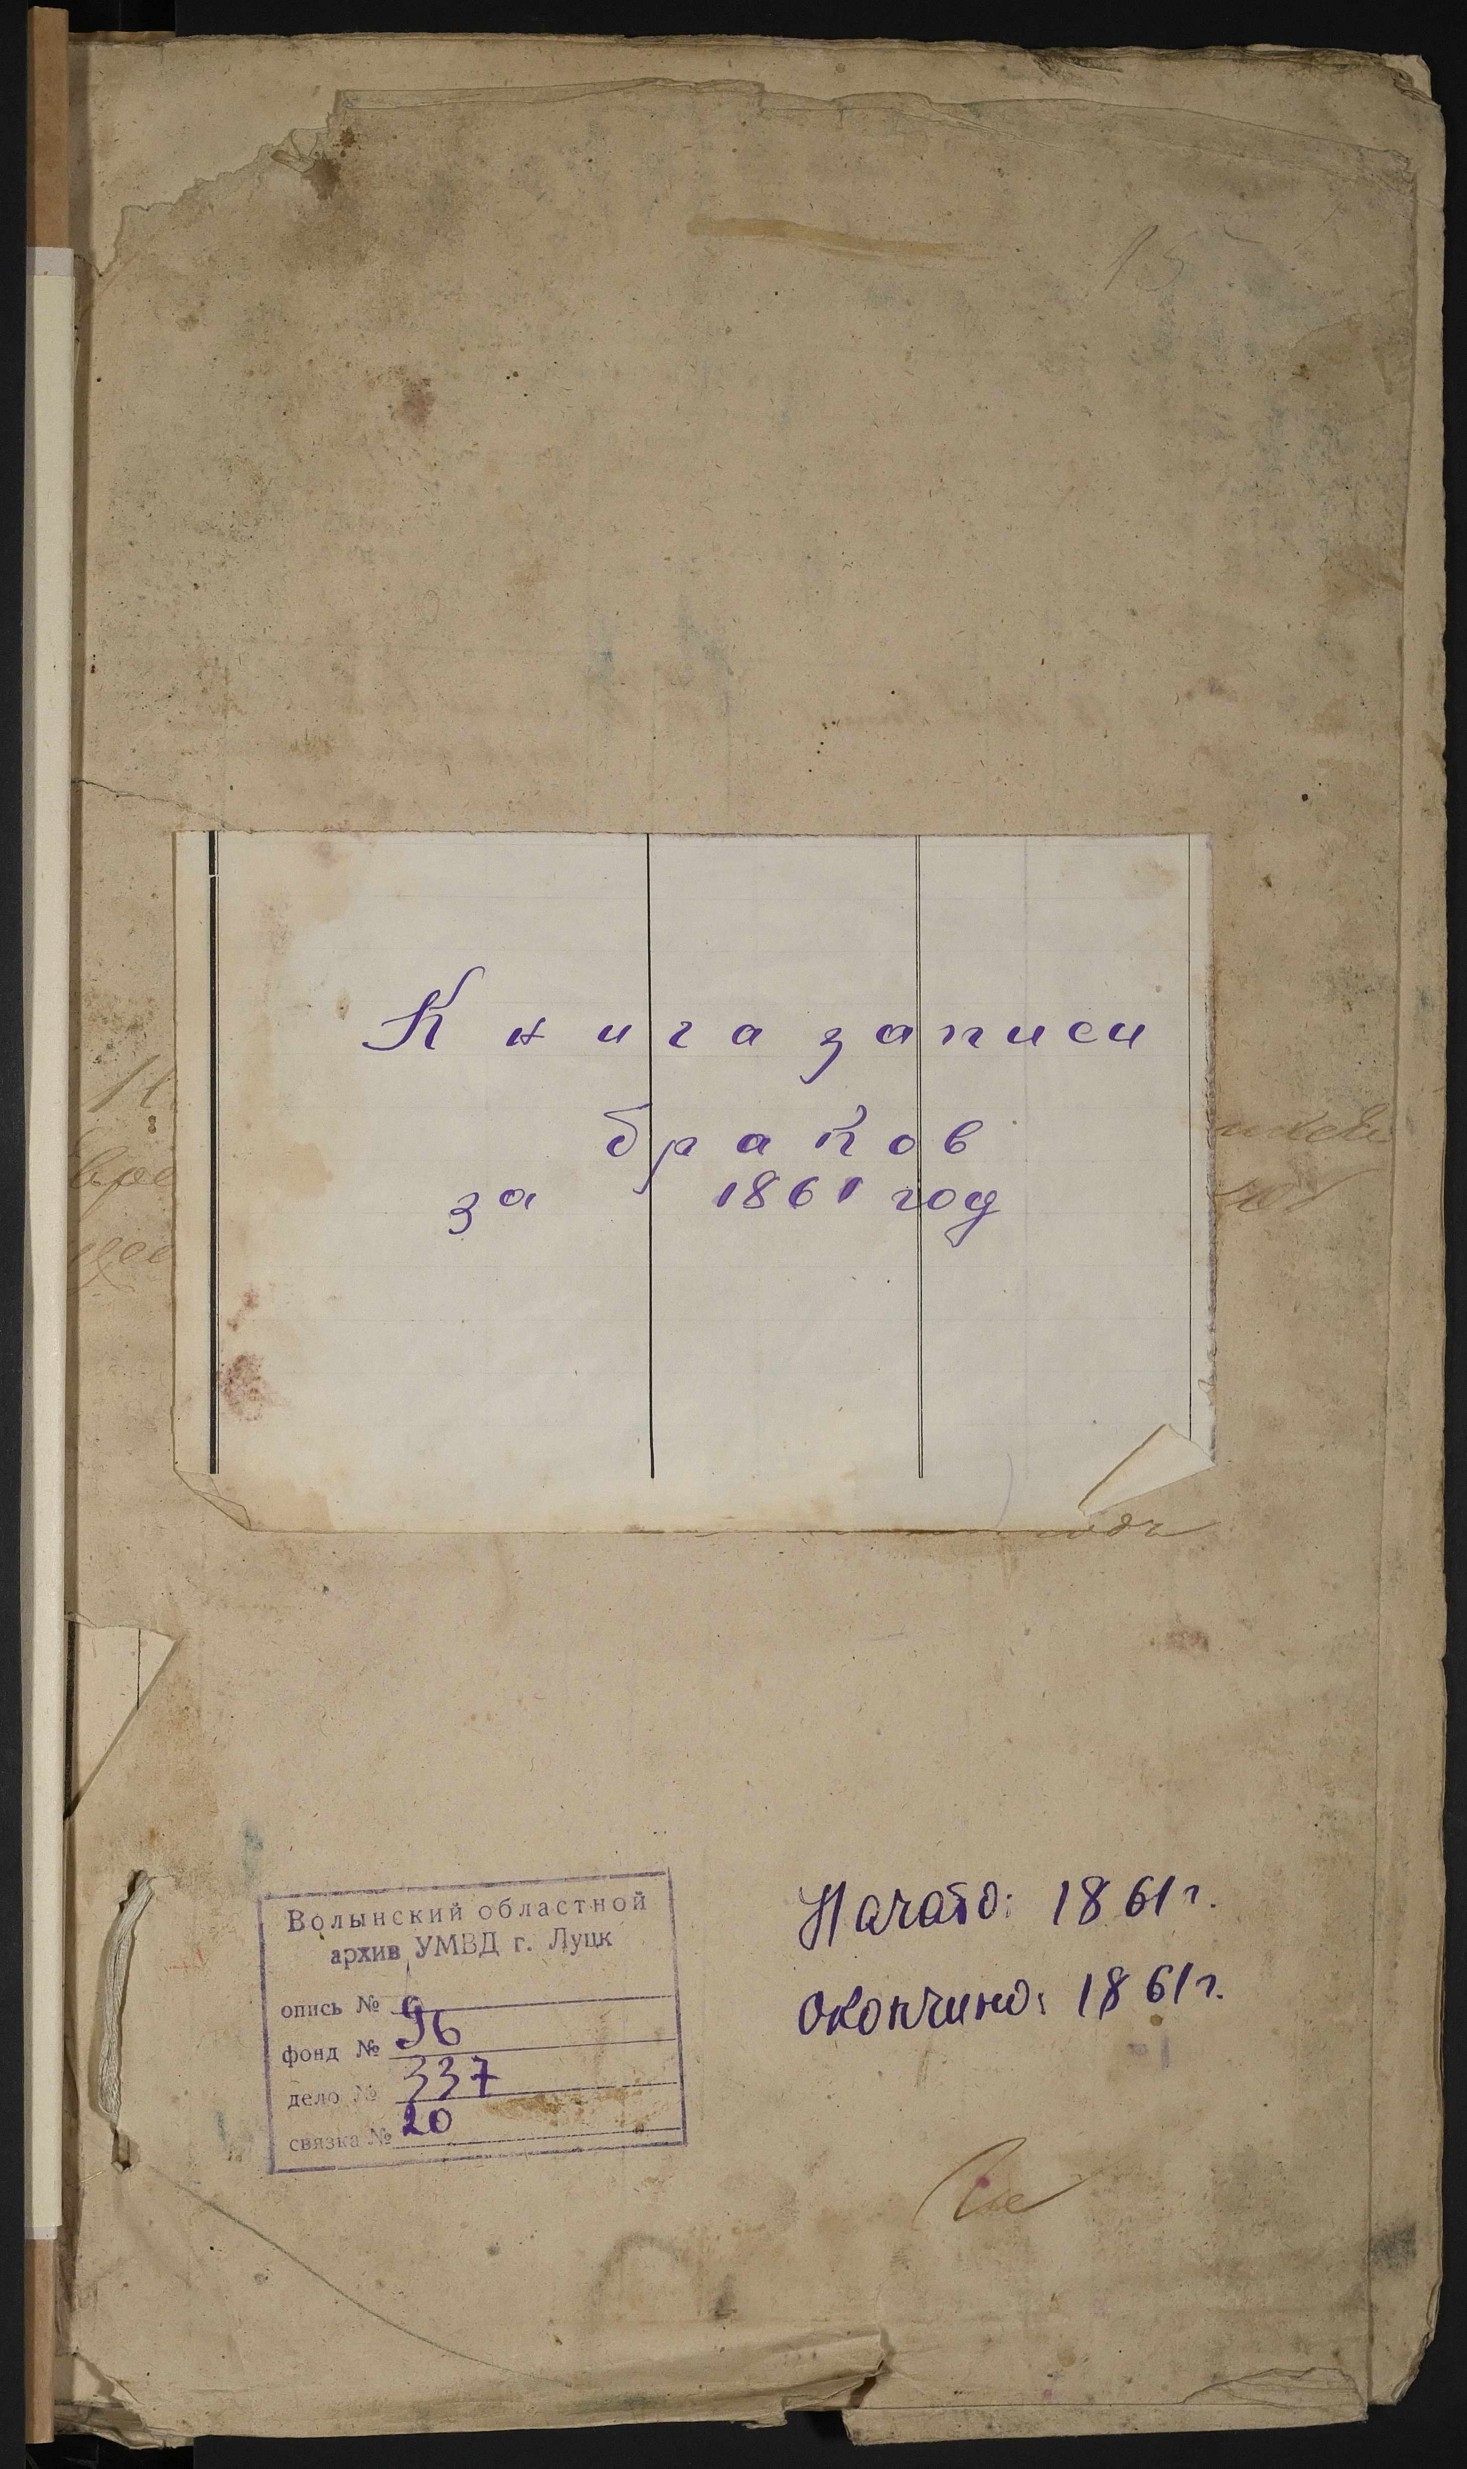 15
Книга записи
браков
за 1861 год
Волынский областной
архив УМВД г. Луцк
опись № 9
фонд № 36
дело № 337
связка № 20
Начато: 1861 г.
Окончино: 1861 г.